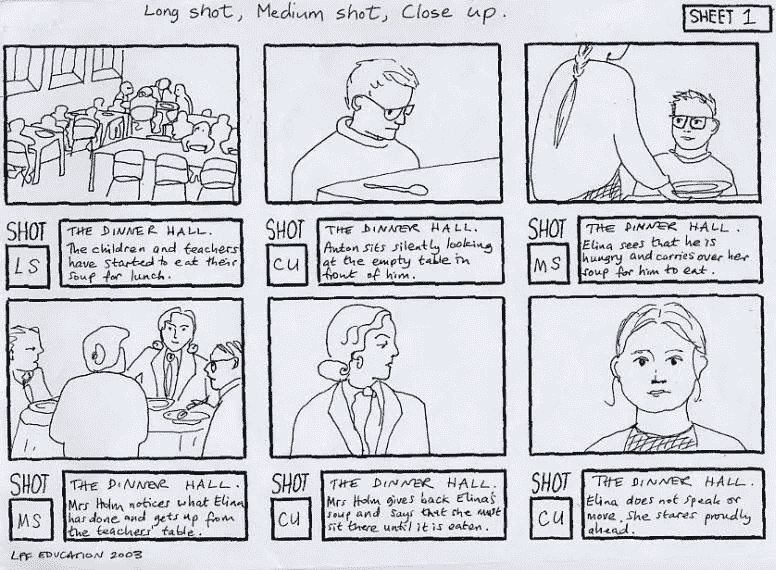 Long shot, Medium shot, Close up.
SHEET 1
SHOT
LS
THE DINNER HALL.
The children and teachers
have started to eat their
soup for lunch.
SHOT
CU
THE DINNER HALL.
Anton sits silently looking
at the empty table in
front of him.
SHOT
MS
THE DINNER HALL.
Elina sees that he is
hungry and carries over her
soup for him to eat.
SHOT
MS
THE DINNER HALL.
Mrs Holm notices what Elina
has done and gets up from
the teachers' table.
SHOT
CU
THE DINNER HALL.
Mrs Holm gives back Elina's
soup and says that she must
sit there until it is eaten.
SHOT
CU
THE DINNER HALL.
Elina does not speak or
move. She stares proudly
ahead.
LPF EDUCATION 2003